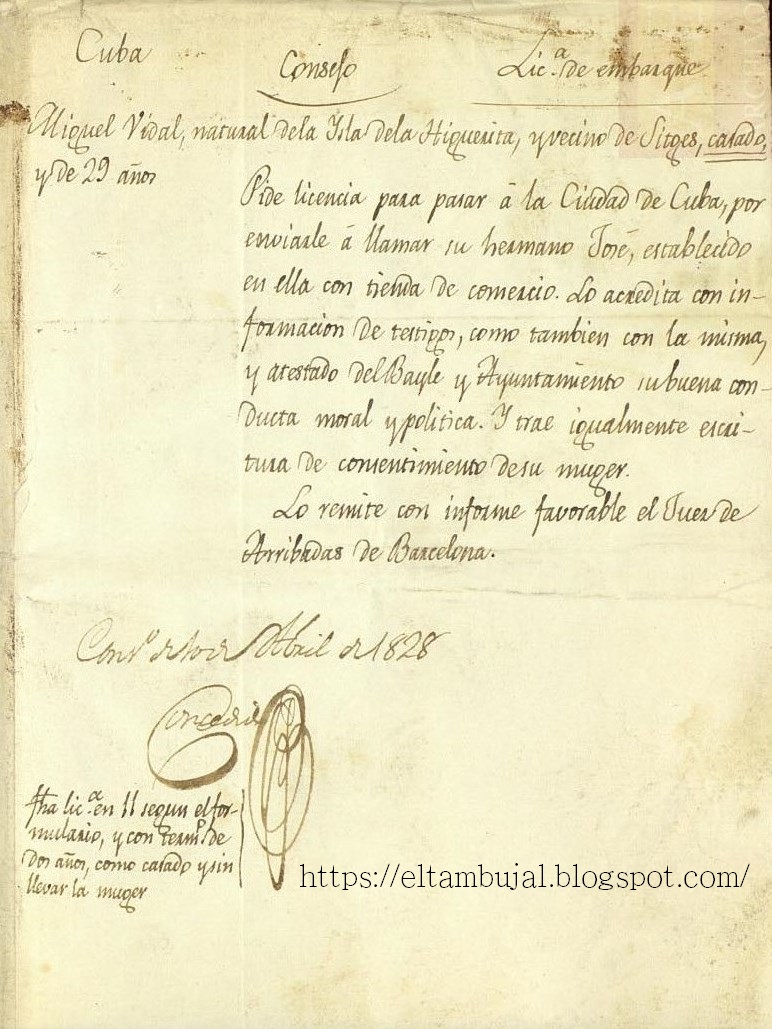 Cuba
Consejo
Lic.ª de embarque
Miguel Vidal, natural dela Ysla dela Higuerita, y vecino de Sitges, casado,
y de 29 años
Pide licencia para pasar á la Ciudad de Cuba, por
enviarle á llamar su hermano José, establecido
en ella con tienda de comercio. Lo acredita con in-
formacion de testigos, como tambien con la misma,
y atestado del Bayle y Ayuntamiento su buena con-
ducta moral y politica. Y trae igualmente escri-
tura de consentimiento de su muger.
Lo remite con informe favorable el Juez de
Arribadas de Barcelona.
Cons.º de 10 de Abril de 1828
Concedida
fha lic.ª en 11 segun el for-
mulario, y con term.º de
dos años, como casado y sin
llevar la muger
https://eltambujal.blogspot.com/